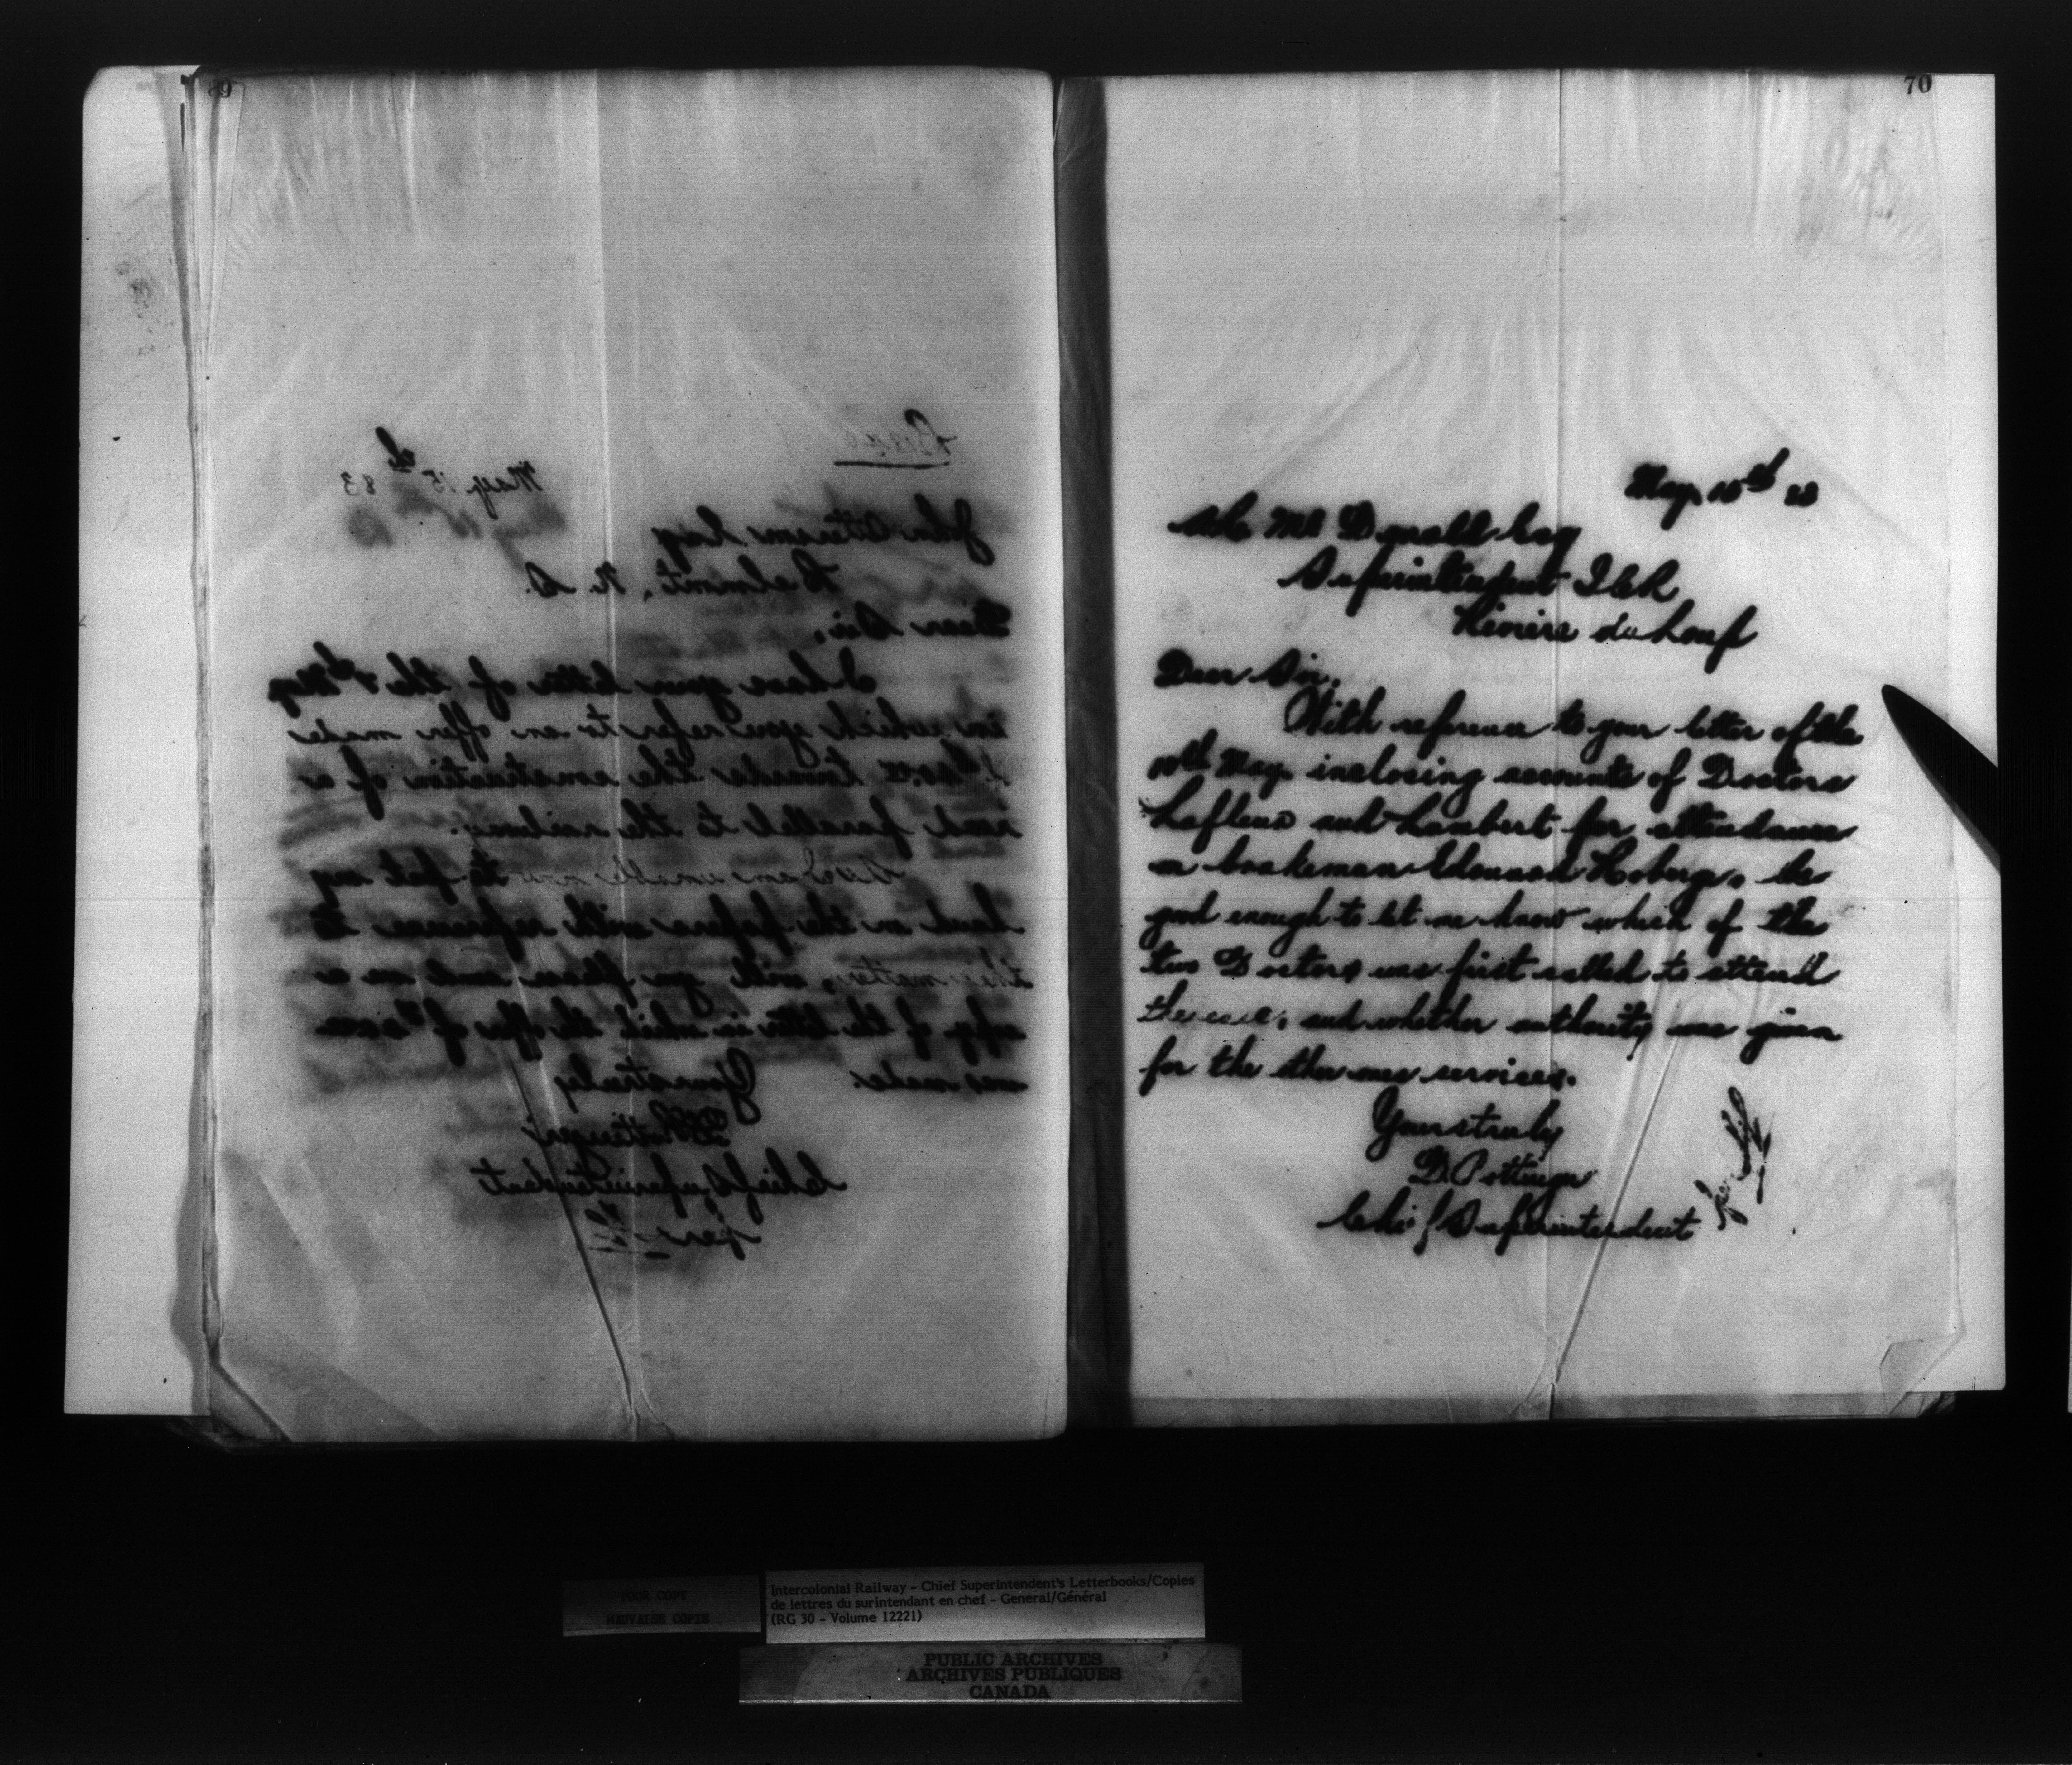 May 15th 83
John Esq
Belmont, N. S.
Dear Sir,
I have your letter of the May
in which you refer to an offer made
towards the construction of a
road parallel to the railway.
am unable now to put my
hand on the papers with reference to
this matter, will you please send me a
copy of the letter in which the offer of
was made.
Yours truly
D Pottinger
Chief Superintendent
per
70
May 15th 83
McDonald Esq
Superintendent ICR
Riviere du Loup
Dear Sir,
With reference to your letter of the
May inclosing accounts of Doctors
and Lambert for attendance
on brakeman Edouard be
good enough to let me know which of the
two Doctors was first called to attend
the case, and whether authority was given
for the services.
Yours truly
D Pottinger
Chief Superintendent
per
POOR COPY
MAUVAISE COPIE
Intercolonial Railway - Chief Superintendent's Letterbooks/Copies
de lettres du surintendant en chef - General/Général
(RG 30 - Volume 12221)
PUBLIC ARCHIVES
ARCHIVES PUBLIQUES
CANADA